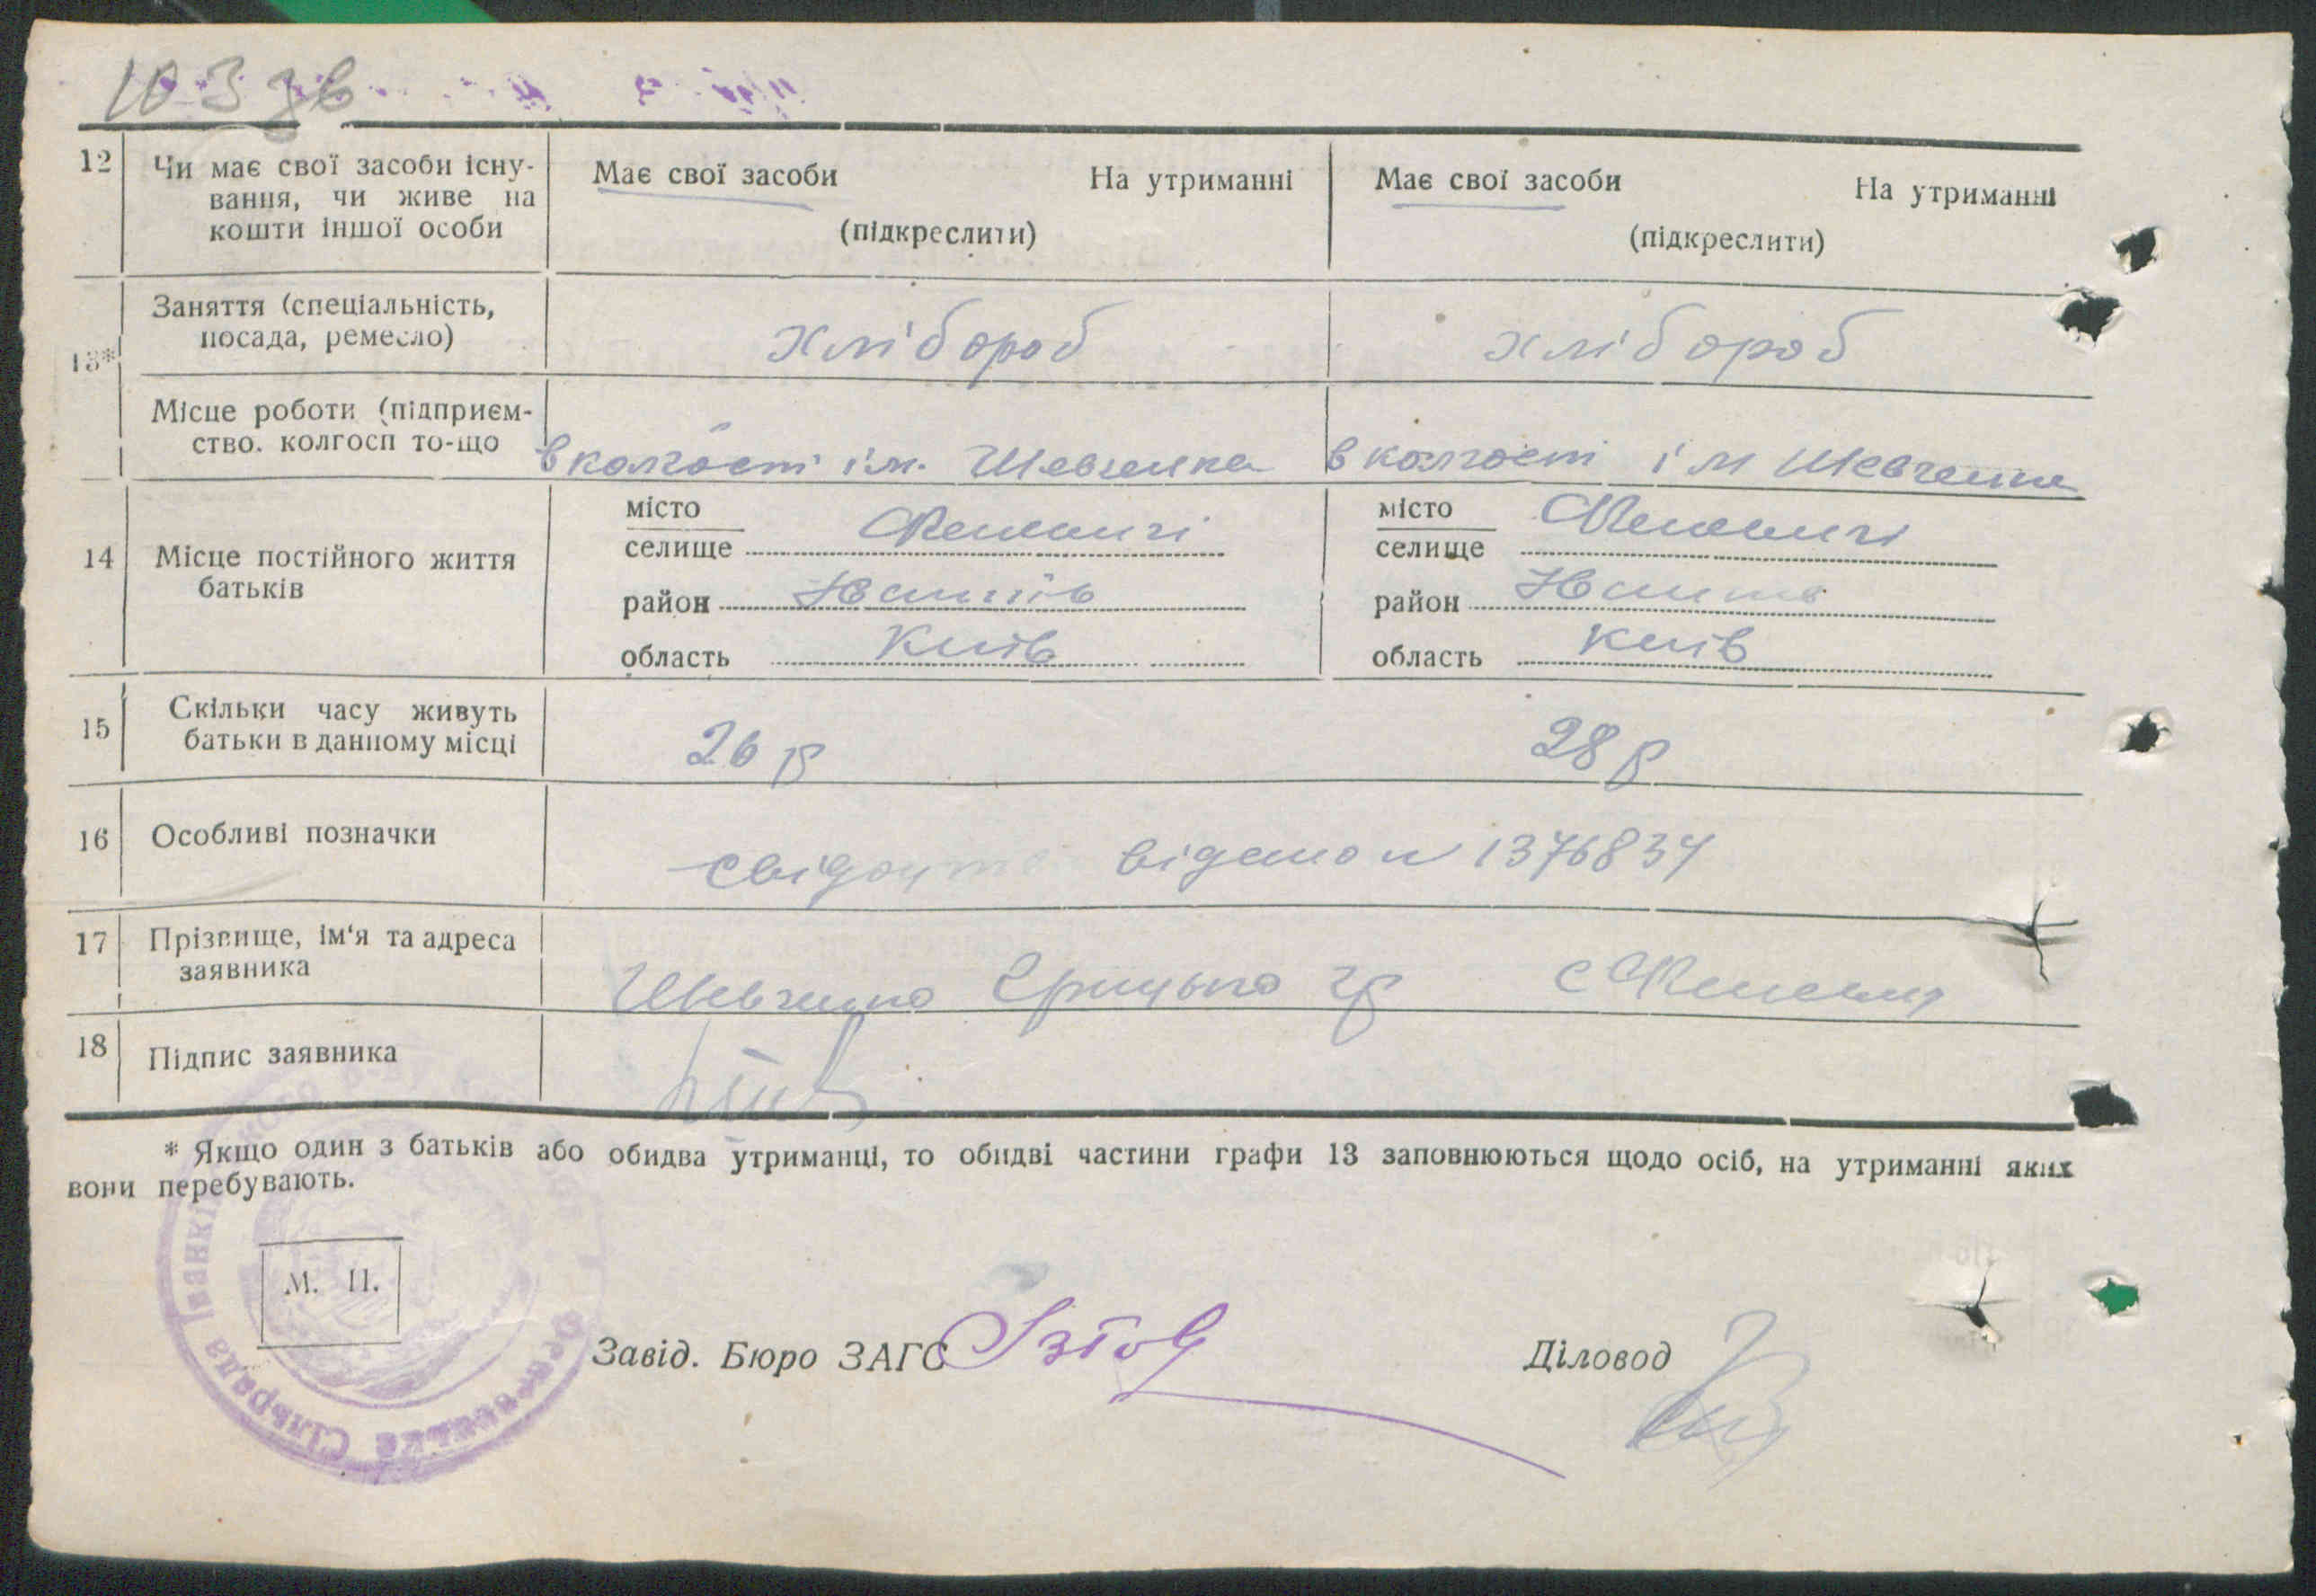 12 Чи має свої засоби існу-
вання, чи живе на
кошти іншої особи
Має свої засоби На утриманні
(підкреслити)
Має свої засоби На утриманні
(підкреслити)
13*
Заняття (спеціальність,
посада, ремесло)
хлібороб
хлібороб
Місце роботи (підприєм-
ство. колгосп то-що
в колгоспі ім. Шевченка
в колгоспі ім Шевченка
14 Місце постійного життя
батьків
місто
селище
район
область Київ
місто
селище
район
область Київ
15 Скільки часу живуть
батьки в данному місці
26 р
28 р
16 Особливі позначки
свідоцтво видано n 1376834
17 Прізвище, ім'я та адреса
заявника
Шевченко Грицько гр с
18 Підпис заявника
* Якщо один з батьків або обидва утриманці, то обидві частини графи 13 заповнюються щодо осіб, на утриманні яких
вони перебувають.
М. П.
Сільрада
Завід. Бюро ЗАГС
Діловод